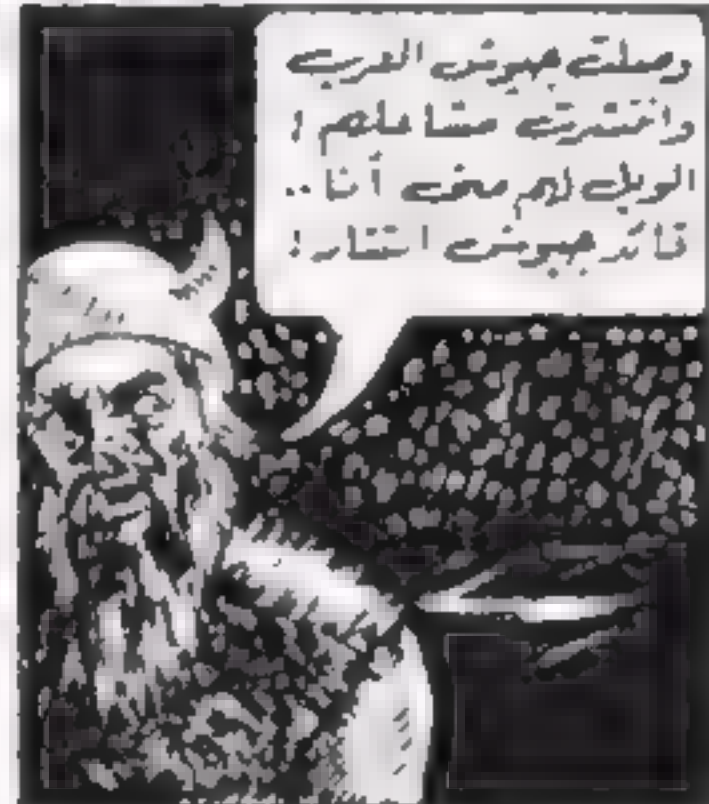 وصلت جيوش العرب
واقتربت مشاعلهم !
الويل لهم مني أنا ..
قائد جيوش التتار !